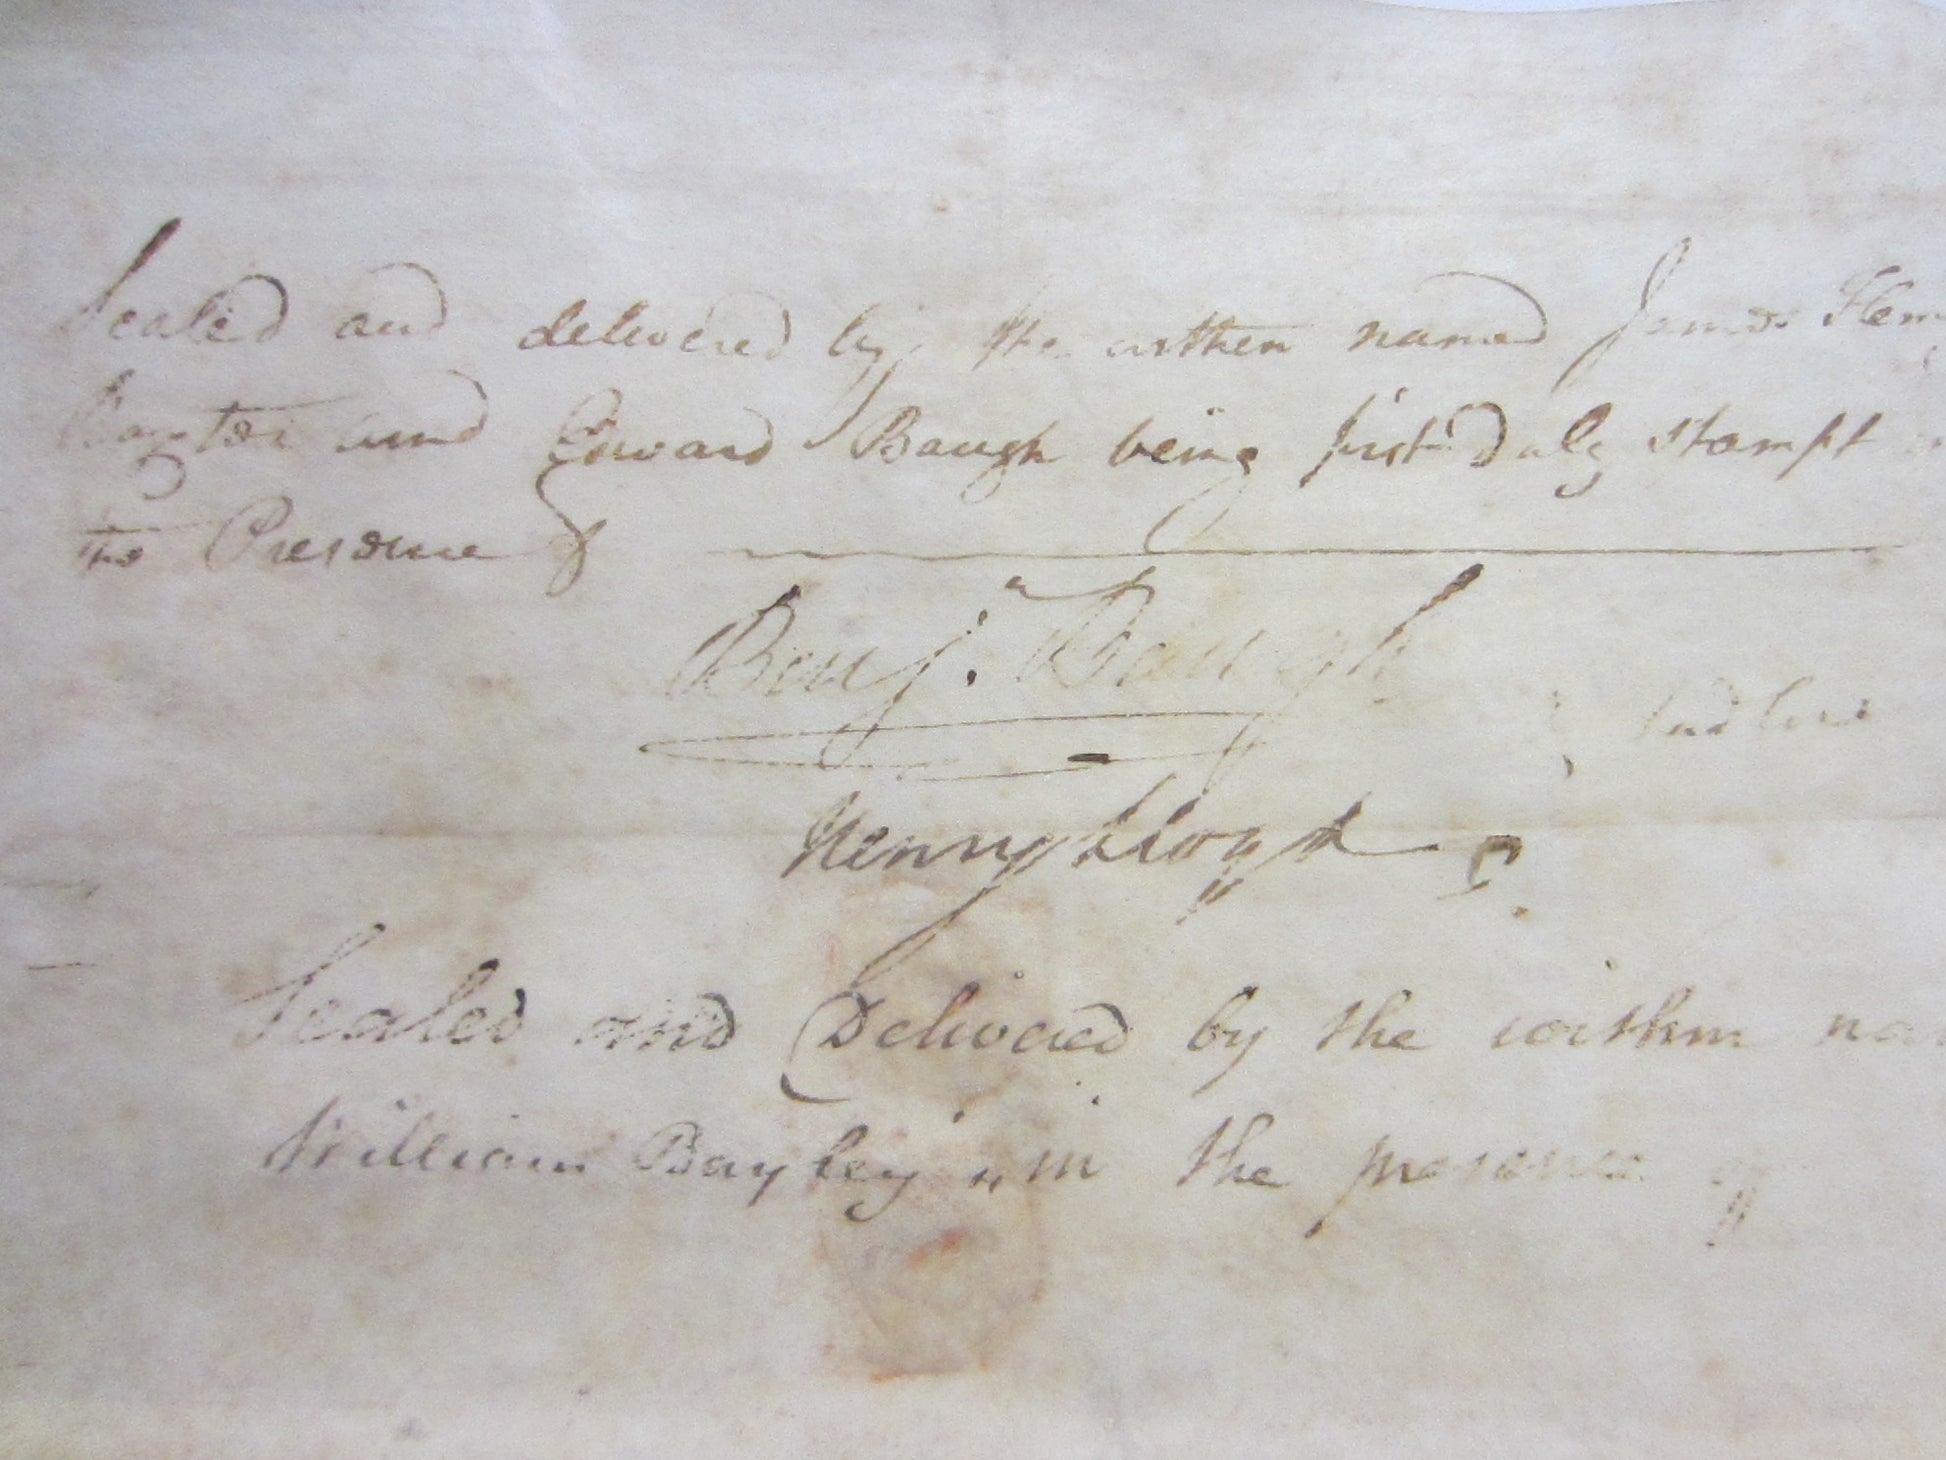 Sealed and delivered by the within named James Hen
Baxter and Edward Baugh being first duly stampt
the Presence of
Benj.n Baugh
Ludlow
Henry Lloyd
Sealed and Delivered by the within na
William Bayley in the presence of